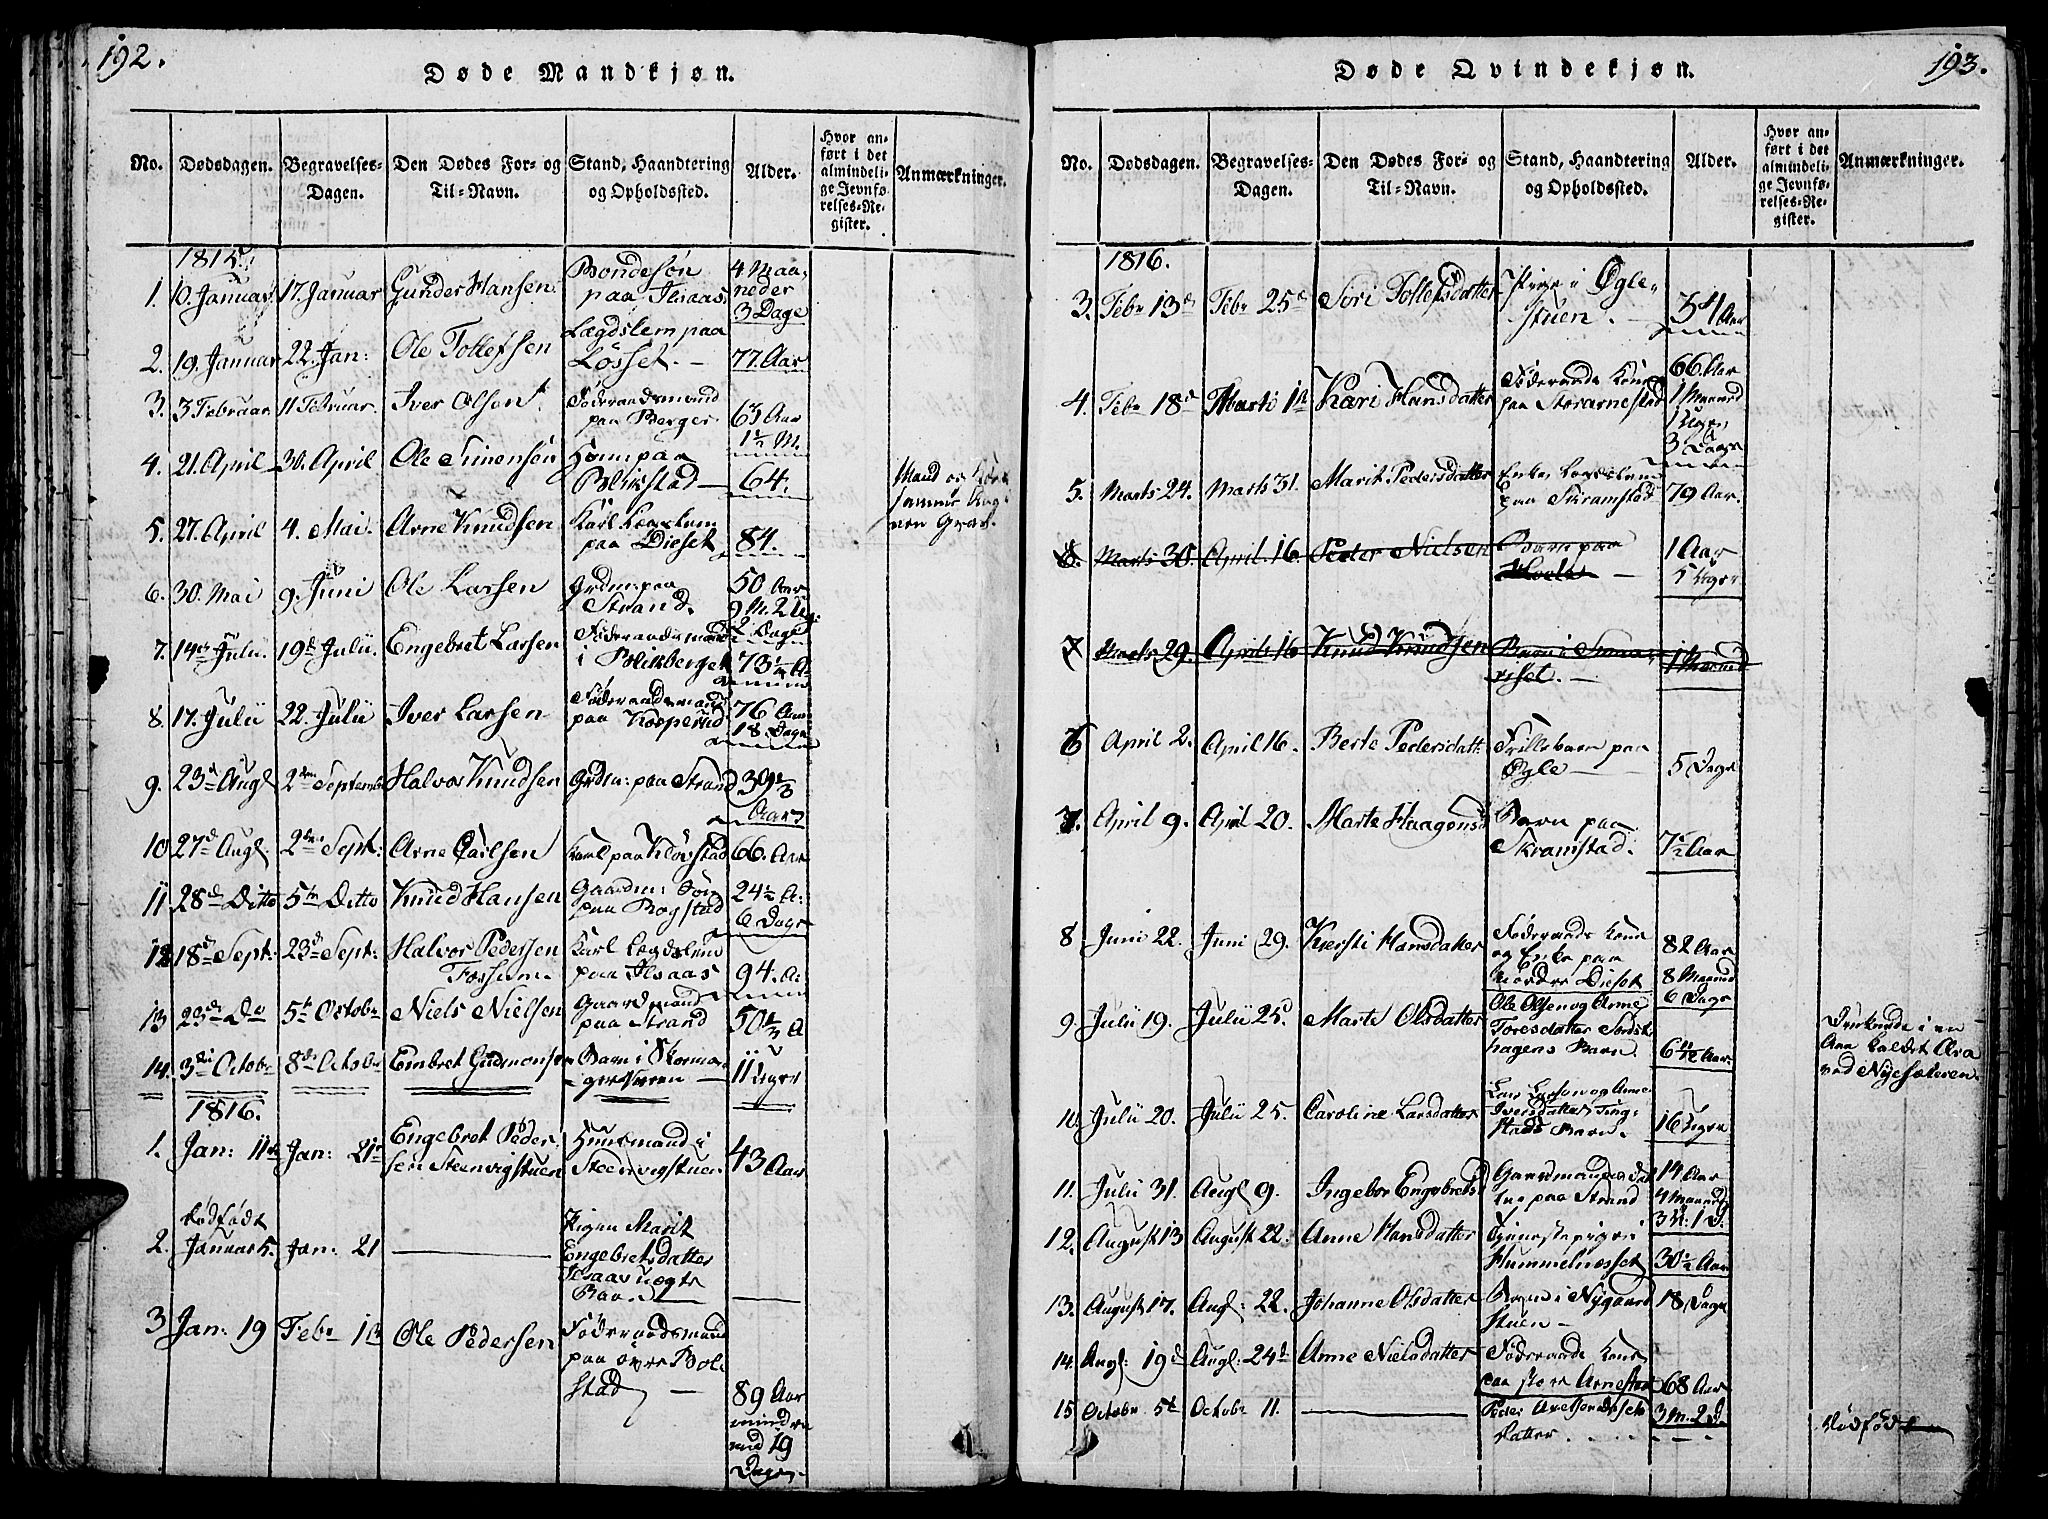 192.
Døde Mandkjøn.
No. Dødsdagen. Begravelses-Dagen. Den Dødes For- og Til-Navn. Stand, Haandtering og Opholdssted. Alder. Hvor anført i det almindelige Jevnførelses-Register. Anmærkninger.
1815.
1. 10. Januar 17. Januar Gunder Hansen Bondesøn paa Ilsaas 4 Maaneder 3 Dage
2. 19. Januar 22. Jan: Ole Tollefsen Lægdslem paa Løsset. 77. Aar
3. 3 Februar 11 Februar. Iver Olsen Föderaadsmand paa Berger 63 Aar 1½ M.
4. 21. April 30. April Ole Simensen paa Blikstad 64. Mand og
5. 27. April 4. Mai. Arne Knudsen Karl paa Dieset 84.
6. 30. Mai 9. Juni Ole Larsen Grdm: paa Strand. 50 Aar 9 M. 2 U. 2 Dage
7. 14de Julii. 19de Julii. Engebret Larsen Föderaadsmand i Blikberget 73½ A
8. 17. Julii 22. Julii Iver Larsen Föderaadsmand paa 76 Aar 18 Dage
9. 23de Augl 2den Septemb Halvor Knudsen Grdm: paa Strand 39 Aar
10 27de Augl: 2den Sept: Arne Carlsen Karl paa Kløvstad 66. Aar
11 28de Ditto 5te Ditto Knud Hansen Gaardm: Søn paa Rogstad 24½ A: 6 Dage
12 18de Sept: 23de Sept: Halvor Pedersen Fossum Karl Lægdslem paa Ilsaas 94. A:
13 23de Do 5te Octobr Niels Nielsen Gaardmand paa Strand 50½ A
14. 3die Octobr 8de Octobr Embret Gudmonsen Barn i 11 Uger
1816.
1. Jan: 11te Jan: 21de Engebret Pedersen Steenvigstuen Huusmand i Steenvigstuen 43 Aar
2. Dødfødt Januar 5. Jan: 21 Pigen Marit Engebretsdatter Ilsaas uægte Barn
3 Jan: 19 Febr 1ste Ole Pedersen Föderaadsmand paa øvre Bolstad 89 Aar mindre end 19 Dage
193.
Døde Qvindekjøn.
No. Dødsdagen. Begravelses-Dagen. Den Dødes For- og Til-Navn. Stand, Haandtering og Opholdssted. Alder. Hvor anført i det almindelige Jevnførelses-Register. Anmærkninger.
1816.
3. Febr 13de Febr 25de Siri Tollefsdatter Pige i Øglestuen. 34 Aar
4. Febr 18de Martii 1ste Kari Hansdatter Föderaads Kone paa Storarnestad 66 Aar 1 Maaned 1 Uge, 3 Dage
5. Marts 24. Marts 31. Marit Pedersdatter Enke Lægdslem paa Skramstad 79 Aar.
6. Marts 30. April 16 Peder Nielsen Barn paa 1 Aar 5 Uger
7 Marts 29. April 16 Knud Knudsen Barn i 1 Maaned
6 April 2. April 16. Berte Pedersdatt. Frillebarn paa Øgle 5 Dage
7. April 9. April 20. Marte Haagensd Barn paa Skramstad. 7½ Aar
8 Juni 22. Juni 29. Kiersti Hansdatter Föderaads Kone og Enke paa Nordre Dieset 82 Aar 8 Maaned 6 Dage
9. Julii 19. Julii 25. Marte Olsdatter Ole Olsen og Anne Toresdatter hagens Barn 6 Aar Druknede i en Aae kaldet Æra ved Nysæteren.
10. Julii 20. Julii 25. Caroline Larsdatter Lars Larsen og Anne Iversdatter Tingstads Barn. 16 Uger
11. Julii 31. Augl 9. Ingebor Engebretsd Gaardmandsdatter paa Strand 14 Aar 4 Maaned 3 U: 1 D.
12. August 13 August 22. Anne Hansdatter Tjenestepige i Hummelnæsset 30½ Aar
13. August 17. Augl: 22. Johanne Olsdatter Barn i Nygaardstuen 18 Dage
14. Augl: 19de Augl: 24de Anne Nielsdatter Föderaads Kone paa store Arnestad 68 Aar 3 M. 2 D.
15 Octobr 5te Octobr 11. Peder datter Dødfødt